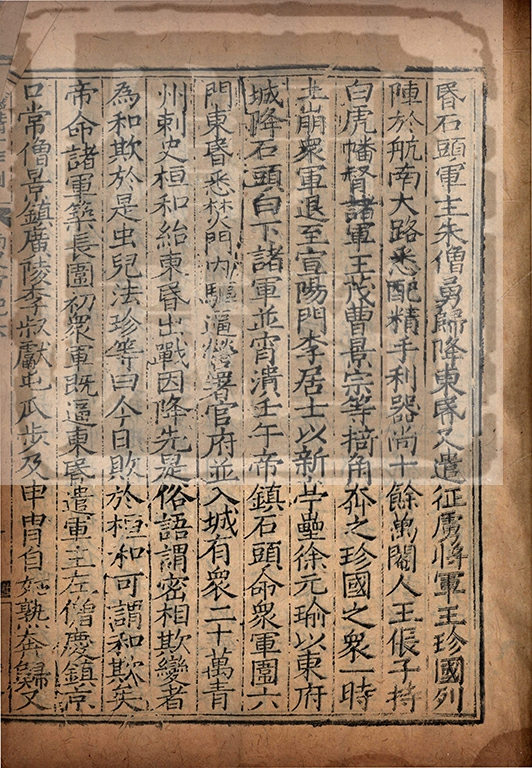 昬石頭軍主朱僧勇歸降東昬又遣征虜將軍王珍國列
陣於航南大路悉配精手利器尚十餘萬閹人王倀子持
白虎幡督諸軍王茂曹景宗等掎角奔之珍國之衆一時
土崩衆軍退至宣陽門李居士以新亭壘徐元瑜以東府
城降石頭白下諸軍並宵潰壬午帝鎮石頭命衆軍圍六
門東昬悉焚門内驅逼營署官府並入城有衆二十萬青
州刺史桓和紿東昬出戰因降先是俗語謂密相欺變者
為和欺於是虫兒法珍等曰今日敗於桓和可謂和欺矣
帝命諸軍築長圍初衆軍既逼東昬遣軍主左僧慶鎮京
口常僧景鎮廣陵李叔獻屯瓜步及申冑自姑孰奔歸又